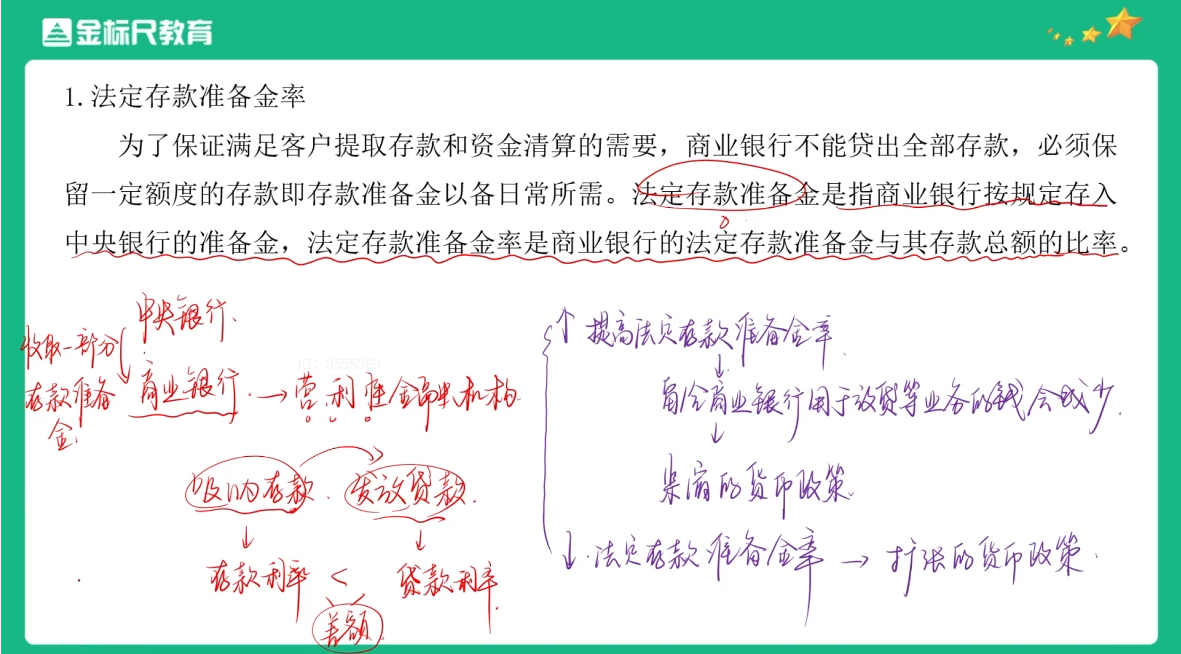 金标尺教育
1.法定存款准备金率
为了保证满足客户提取存款和资金清算的需要，商业银行不能贷出全部存款，必须保
留一定额度的存款即存款准备金以备日常所需。法定存款准备金是指商业银行按规定存入
中央银行的准备金，法定存款准备金率是商业银行的法定存款准备金与其存款总额的比率。
中央银行.
收取一部分
存款准备
金.
商业银行.→营利性金融机构
ID：3555369
吸纳存款.
发放贷款.
↓
↓
存款利率 < 贷款利率
差额
↑ 提高法定存款准备金率
↓
留给商业银行用于放贷等业务的钱会减少.
↓
紧缩的货币政策.
↓.法定存款准备金率 → 扩张的货币政策.